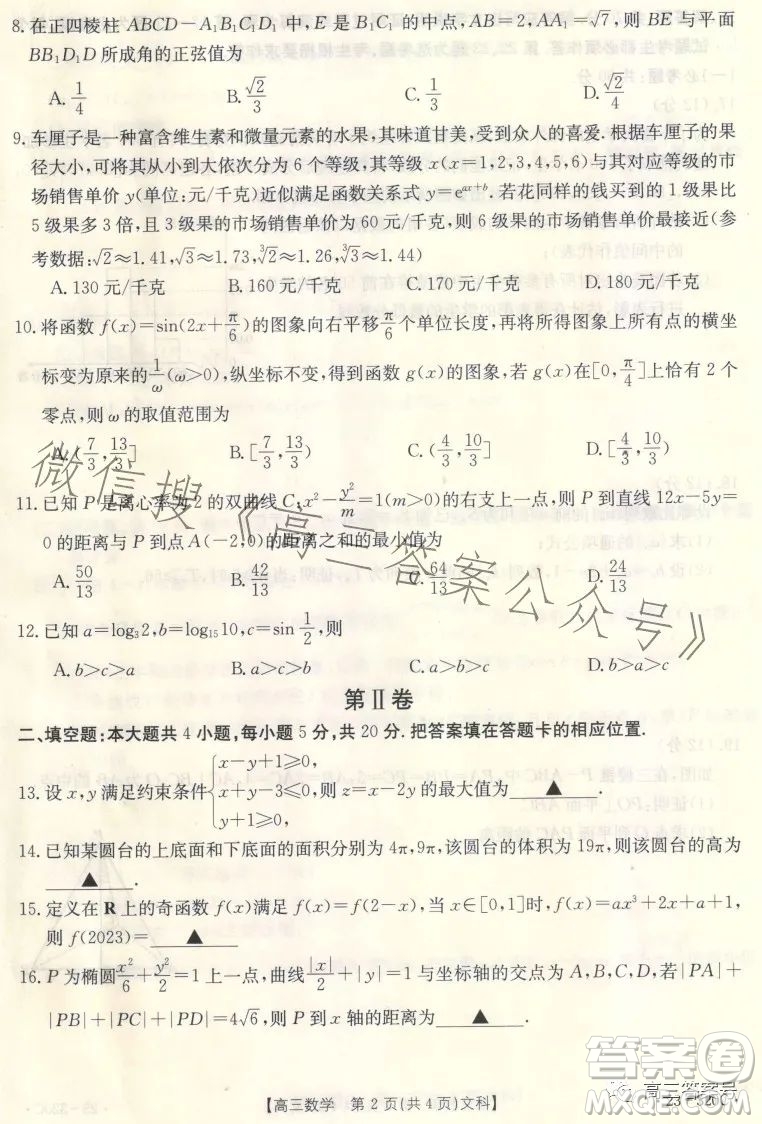 8.在正四棱柱 ABCD-A₁B₁C₁D₁ 中,E 是 B₁C₁ 的中点,AB=2,AA₁=√7,则 BE 与平面
BB₁D₁D 所成角的正弦值为
A.1/4 B.√2/3 C.1/3 D.√2/4
9.车厘子是一种富含维生素和微量元素的水果,其味道甘美,受到众人的喜爱.根据车厘子的果
径大小,可将其从小到大依次分为 6 个等级,其等级 x(x=1,2,3,4,5,6)与其对应等级的市
场销售单价 y(单位:元/千克)近似满足函数关系式 y=e^(ax+b).若花同样的钱买到的 1 级果比
5 级果多 3 倍,且 3 级果的市场销售单价为 60 元/千克,则 6 级果的市场销售单价最接近(参
考数据:√2≈1.41,√3≈1.73,∛2≈1.26,∛3≈1.44)
A.130 元/千克 B.160 元/千克 C.170 元/千克 D.180 元/千克
10.将函数 f(x)=sin(2x+π/6)的图象向右平移π/6个单位长度,再将所得图象上所有点的横坐
标变为原来的1/ω(ω>0),纵坐标不变,得到函数 g(x)的图象,若 g(x)在[0,π/4]上恰有 2 个
零点,则 ω 的取值范围为
A.(7/3,13/3] B.[7/3,13/3) C.(4/3,10/3] D.[4/3,10/3)
11.已知 P 是离心率为 2 的双曲线 C:x²-y²/m=1(m>0)的右支上一点,则 P 到直线 12x-5y=
0 的距离与 P 到点 A(-2,0)的距离之和的最小值为
A.50/13 B.42/13 C.64/13 D.24/13
12.已知 a=log₃2,b=log₁₅10,c=sin 1/2,则
A.b>c>a B.b>a>c C.a>b>c D.b>a>c
第Ⅱ卷
二、填空题:本大题共 4 小题,每小题 5 分,共 20 分.把答案填在答题卡的相应位置.
13.设 x,y 满足约束条件{x-y+1≥0,
x+y-3≤0,则 z=x-2y 的最大值为 ▲ .
y+1≥0,
14.已知某圆台的上底面和下底面的面积分别为 4π,9π,该圆台的体积为 19π,则该圆台的高为
▲ .
15.定义在 R 上的奇函数 f(x)满足 f(x)=f(2-x),当 x∈[0,1]时,f(x)=ax³+2x+a+1,
则 f(2023)= ▲ .
16.P 为椭圆x²/6+y²/2=1 上一点,曲线|x|/2+|y|=1 与坐标轴的交点为 A,B,C,D,若|PA|+
|PB|+|PC|+|PD|=4√6,则 P 到 x 轴的距离为 ▲ .
【高三数学 第 2 页(共 4 页)文科】
23-320C
微信搜《高三答案公众号》
答案卷
高三答案号